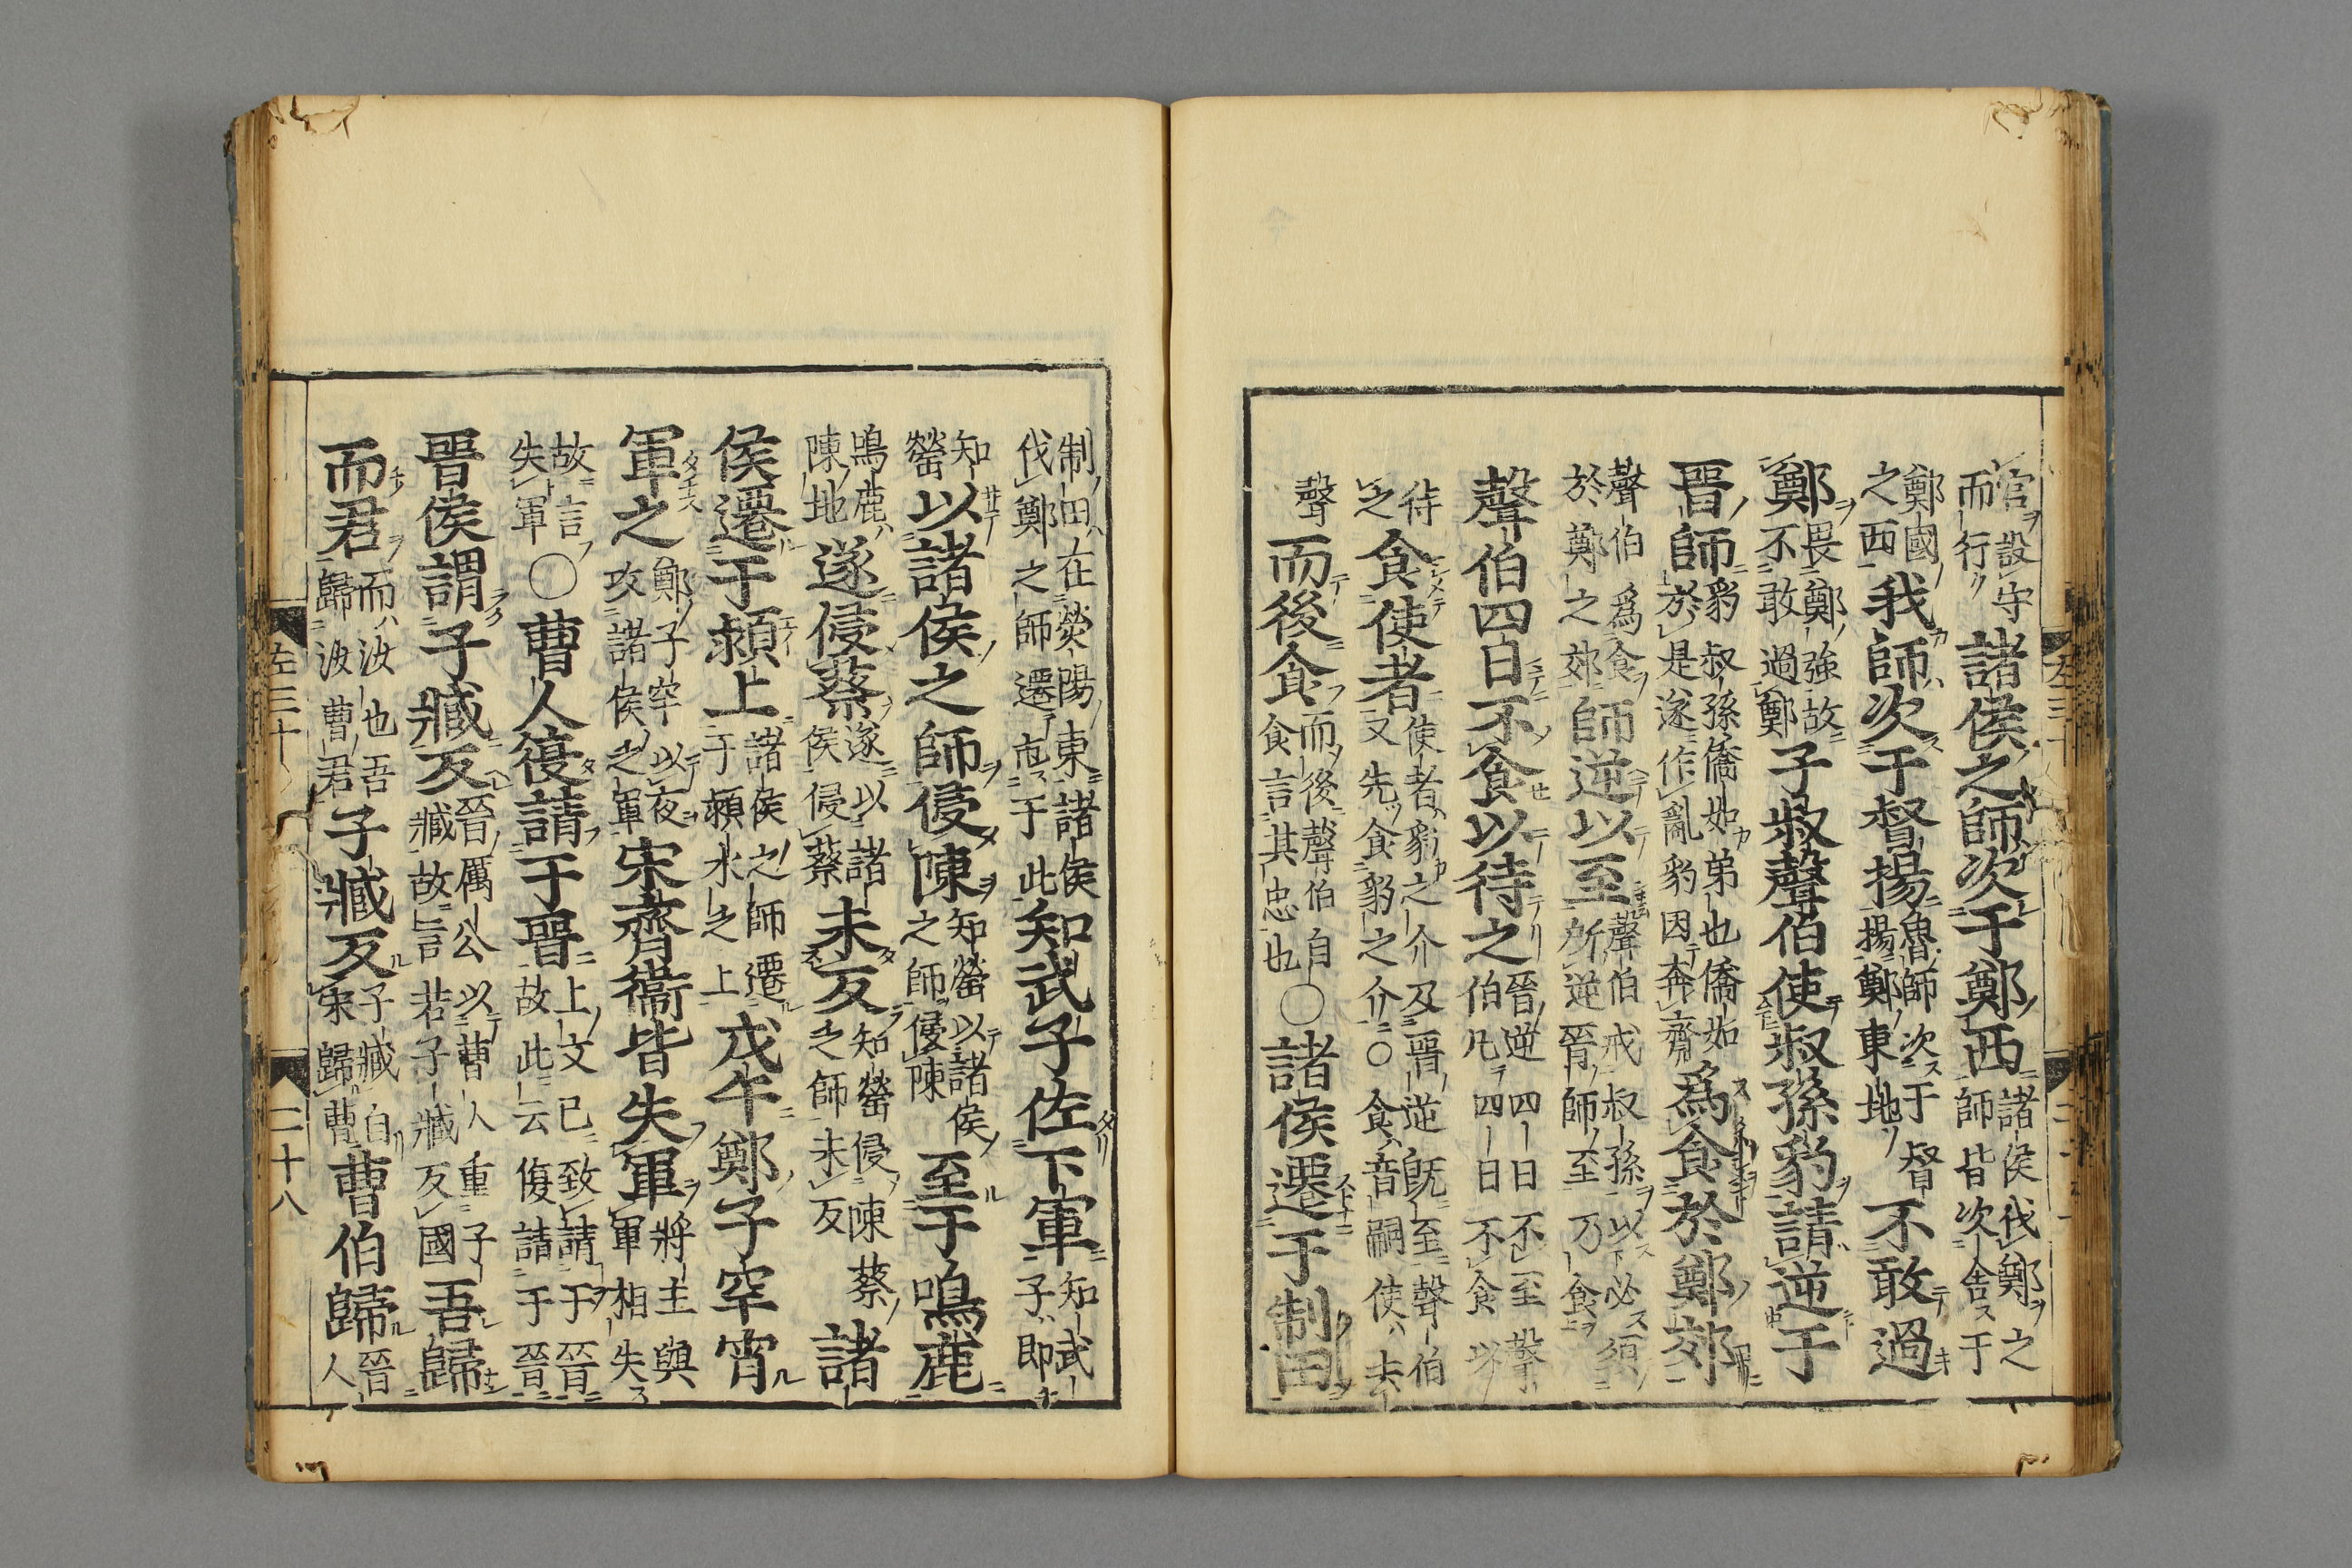 宮設守而行諸侯之師次于鄭西諸侯伐鄭之師皆次舍于
鄭國之西我師次于督揚魯師次于督揚鄭東地不敢過
鄭畏鄭強故不敢過鄭子叔聲伯使叔孫豹請逆于
晉師豹叔孫僑如弟也僑如於是遂作亂豹因奔齊爲食於鄭郊
聲伯爲食於鄭之郊師逆以至聲伯戒叔孫以必須所逆晉師至乃食
聲伯四日不食以待之晉逆四日不至聲伯凡四日不食以
待之食使者使者豹之介及晉逆既至聲伯又先食豹之介○食音嗣使去
聲而後食而後聲伯自食言其忠也○諸侯遷于制田
制田在滎陽東諸侯伐鄭之師遷于此知武子佐下軍知武子即
知罃以諸侯之師侵陳知罃以諸侯之師侵陳至于鳴鹿
鳴鹿陳地遂侵蔡遂以諸侯侵蔡未反知罃侵陳蔡之師未反諸
侯遷于潁上諸侯之師遷于潁水之上戊午鄭子罕宵
軍之鄭子罕以夜攻諸侯之軍宋齊衞皆失軍將主與軍相失
故言失軍○曹人復請于晉上文已致請于晉故此云復請于晉
晉侯謂子臧反晉厲公以曹人重子臧故言若子臧反國吾歸
而君而汝也吾歸汝曹君子臧反子臧自宋歸曹曹伯歸晉人
左三十 二十八